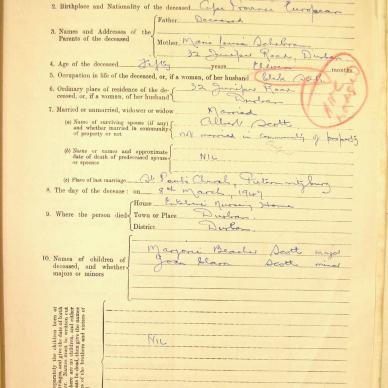 2. Birthplace and Nationality of the deceased Cape Province European
Father. Deceased
3. Names and Addresses of the Parents of the deceased
Mother.
32 Juniper Road, Durban
4. Age of the deceased Fifty years Eleven months
5. Occupation in life of the deceased, or, if a woman, of her husband Clerk
6. Ordinary place of residence of the deceased, or, if a woman, of her husband 32 Juniper Road Durban
7. Married or unmarried, widower or widow Married
(a) Name of surviving spouse (if any) and whether married in community of property or not Albert Scott
not married in community of property
(b) Name or names and approximate date of death of predeceased spouse or spouses Nil
(c) Place of last marriage St Pauls Church, Pietermaritzburg
8. The day of the decease: on 8th March, 1947
9. Where the person died House Nursing Home
Town or Place Durban
District Durban
10. Names of children of deceased, and whether majors or minors
Marjorie Scott major
Joan Scott
Nil